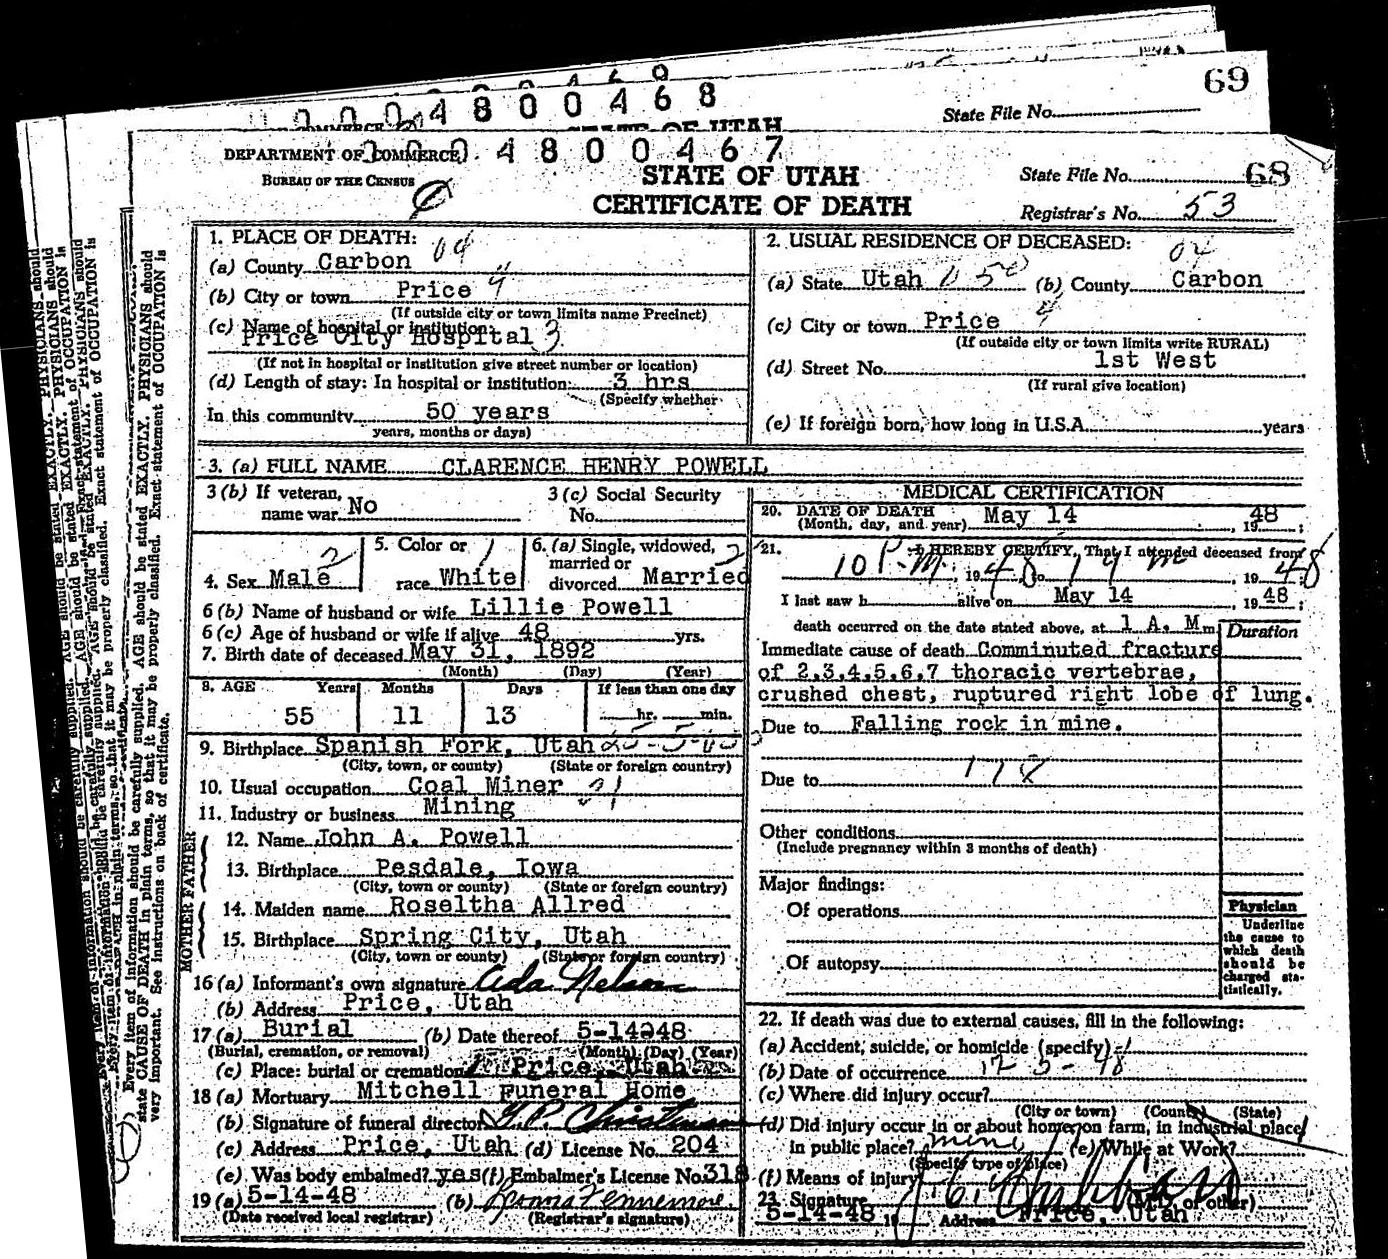 69
0004800468
State File No.
STATE OF UTAH
0004800467
DEPARTMENT OF COMMERCE
BUREAU OF THE CENSUS
STATE OF UTAH
CERTIFICATE OF DEATH
State File No. 68
Registrar's No. 53
1. PLACE OF DEATH: 04
(a) County Carbon
(b) City or town Price 4
(If outside city or town limits name Precinct)
(c) Name of hospital or institution:
Price City Hospital 3
(If not in hospital or institution give street number or location)
(d) Length of stay: In hospital or institution: 3 hrs
(Specify whether
In this community 50 years
years, months or days)
2. USUAL RESIDENCE OF DECEASED:
04
(a) State Utah (b) County Carbon
(c) City or town Price 4
(If outside city or town limits write RURAL)
(d) Street No. 1st West
(If rural give location)
(e) If foreign born, how long in U.S.A. years
3. (a) FULL NAME CLARENCE HENRY POWELL
3 (b) If veteran, name war No
3 (c) Social Security No.
4. Sex Male 2
5. Color or race White 1
6. (a) Single, widowed, married or divorced Married 2
6 (b) Name of husband or wife Lillie Powell
6 (c) Age of husband or wife if alive 48 yrs.
7. Birth date of deceased May 31, 1892
(Month) (Day) (Year)
8. AGE Years Months Days If less than one day
55 11 13 hr. min.
9. Birthplace Spanish Fork, Utah
(City, town, or county) (State or foreign country)
10. Usual occupation Coal Miner
11. Industry or business Mining
FATHER
12. Name John A. Powell
13. Birthplace Pesdale, Iowa
(City, town or county) (State or foreign country)
MOTHER
14. Maiden name Roseltha Allred
15. Birthplace Spring City, Utah
(City, town or county) (State or foreign country)
16 (a) Informant's own signature Ada Nelson
(b) Address Price, Utah
17 (a) Burial (b) Date thereof 5-14-48
(Burial, cremation, or removal) (Month) (Day) (Year)
(c) Place: burial or cremation Price, Utah
18 (a) Mortuary Mitchell Funeral Home
(b) Signature of funeral director
(c) Address Price, Utah (d) License No. 204
(e) Was body embalmed? yes (f) Embalmer's License No. 318
19 (a) 5-14-48 (b)
(Date received local registrar) (Registrar's signature)
MEDICAL CERTIFICATION
20. DATE OF DEATH May 14 1948;
(Month, day, and year)
21. I HEREBY CERTIFY, That I attended deceased from
10 P.M., 1948 to 1948
I last saw h alive on May 14, 1948;
death occurred on the date stated above, at 1 A. M. m
Duration
Immediate cause of death Comminuted fracture
of 2,3,4,5,6,7 thoracic vertebrae,
crushed chest, ruptured right lobe of lung.
Due to Falling rock in mine.
Due to
Other conditions
(Include pregnancy within 3 months of death)
Major findings:
Of operations
Of autopsy
Physician
Underline the cause to which death should be charged statistically.
22. If death was due to external causes, fill in the following:
(a) Accident, suicide, or homicide (specify)
(b) Date of occurrence
(c) Where did injury occur?
(City or town) (County) (State)
(d) Did injury occur in or about home, on farm, in industrial place,
in public place? mine (e) While at Work?
(Specify type of place)
(f) Means of injury
23. Signature
5-14-48 Address Price, Utah
Every item of information should be carefully supplied. AGE should be stated EXACTLY. PHYSICIANS should
state CAUSE OF DEATH in plain terms, so that it may be properly classified. Exact statement of OCCUPATION is
very important. See instructions on back of certificate.